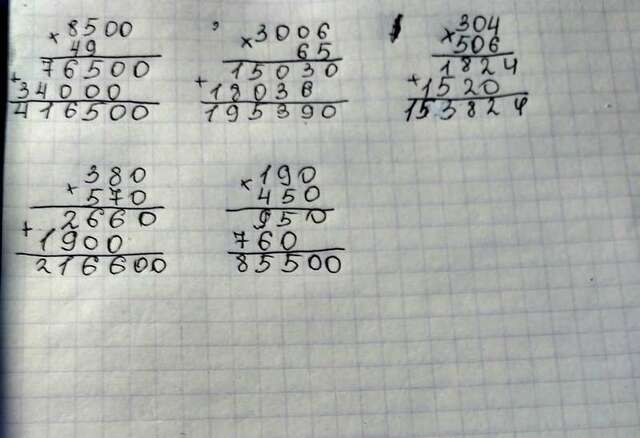 × 8500
49
76500
+ 34000
416500
× 3006
65
15030
+ 18036
195390
× 304
506
1824
+ 1520
153824
380
× 570
2660
+ 1900
216600
× 190
450
950
760
85500